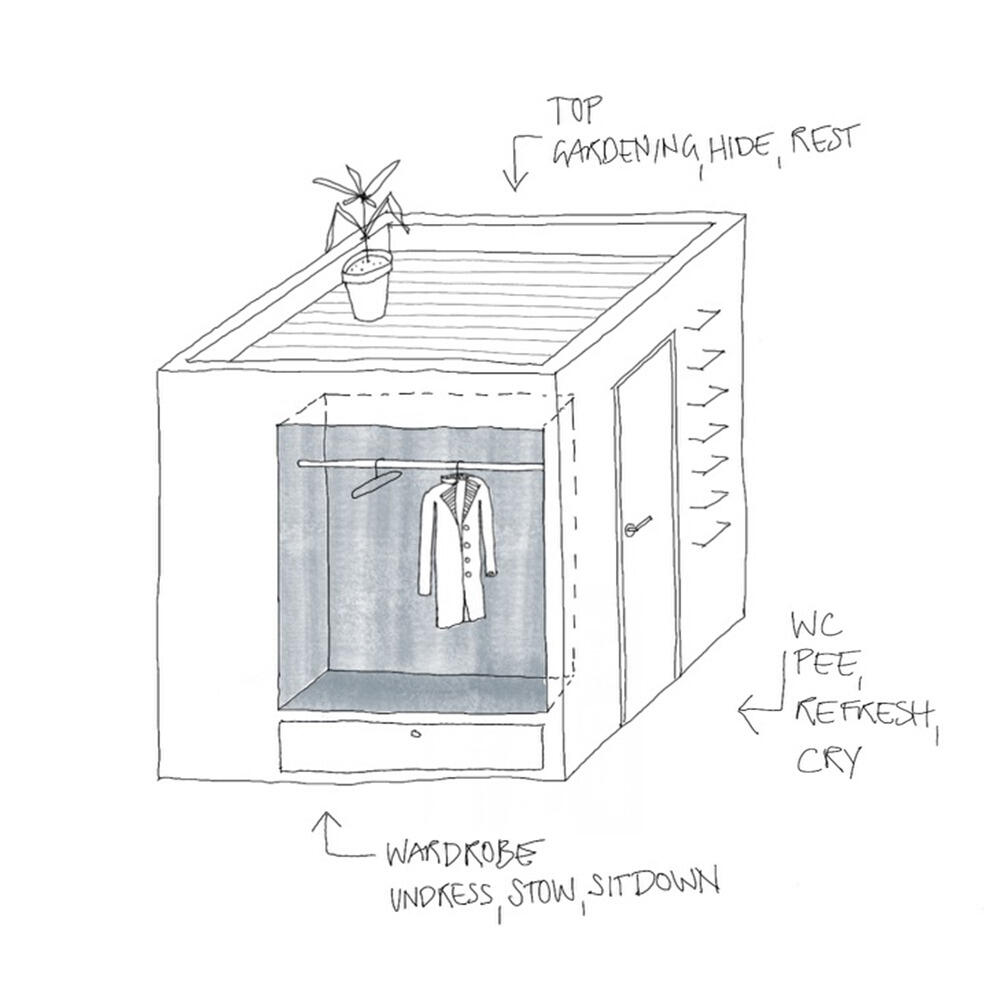 TOP
GARDENING, HIDE, REST
WC
PEE,
REFRESH,
CRY
WARDROBE
UNDRESS, STOW, SITDOWN